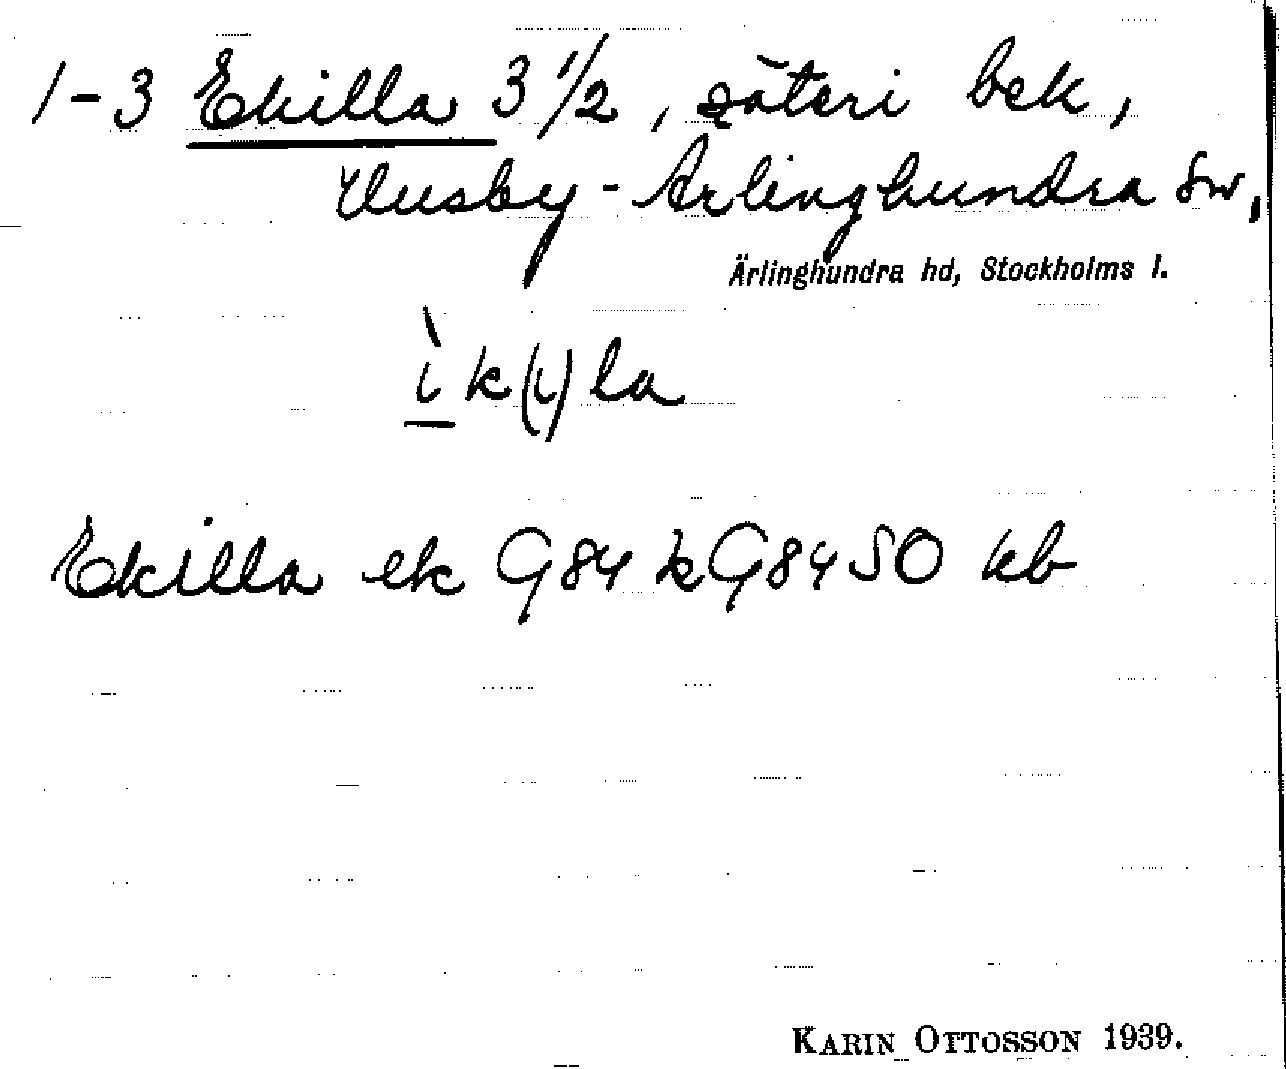 1-3 Ekilla 3 1/2, säteri bek,
Husby-Ärlinghundra sn,
Ärlinghundra hd, Stockholms l.
ìk(ı)la
Ekilla ek G84 k G84 SO kb
KARIN OTTOSSON 1939.